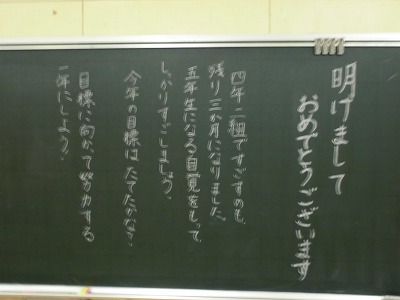 明けまして
おめでとうございます
四年二組ですごすのも、
残り三か月になりました。
五年生になる自覚をもって、
しっかりすごしましょう。
今年の目標は、たてたかな？
目標に向かって努力する
一年にしよう。